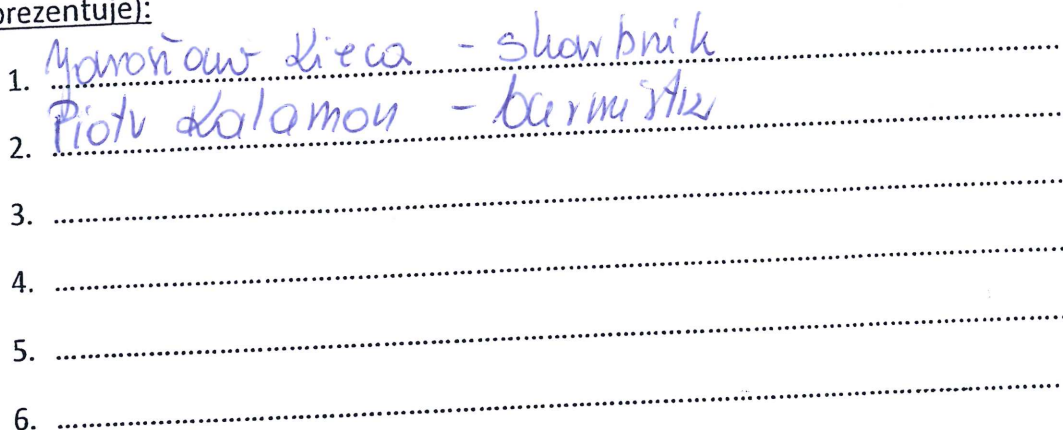 prezentuje):
1. Jarosław Kieca - skarbnik
2. Piotr Kalamon - burmistrz
3.
4.
5.
6.